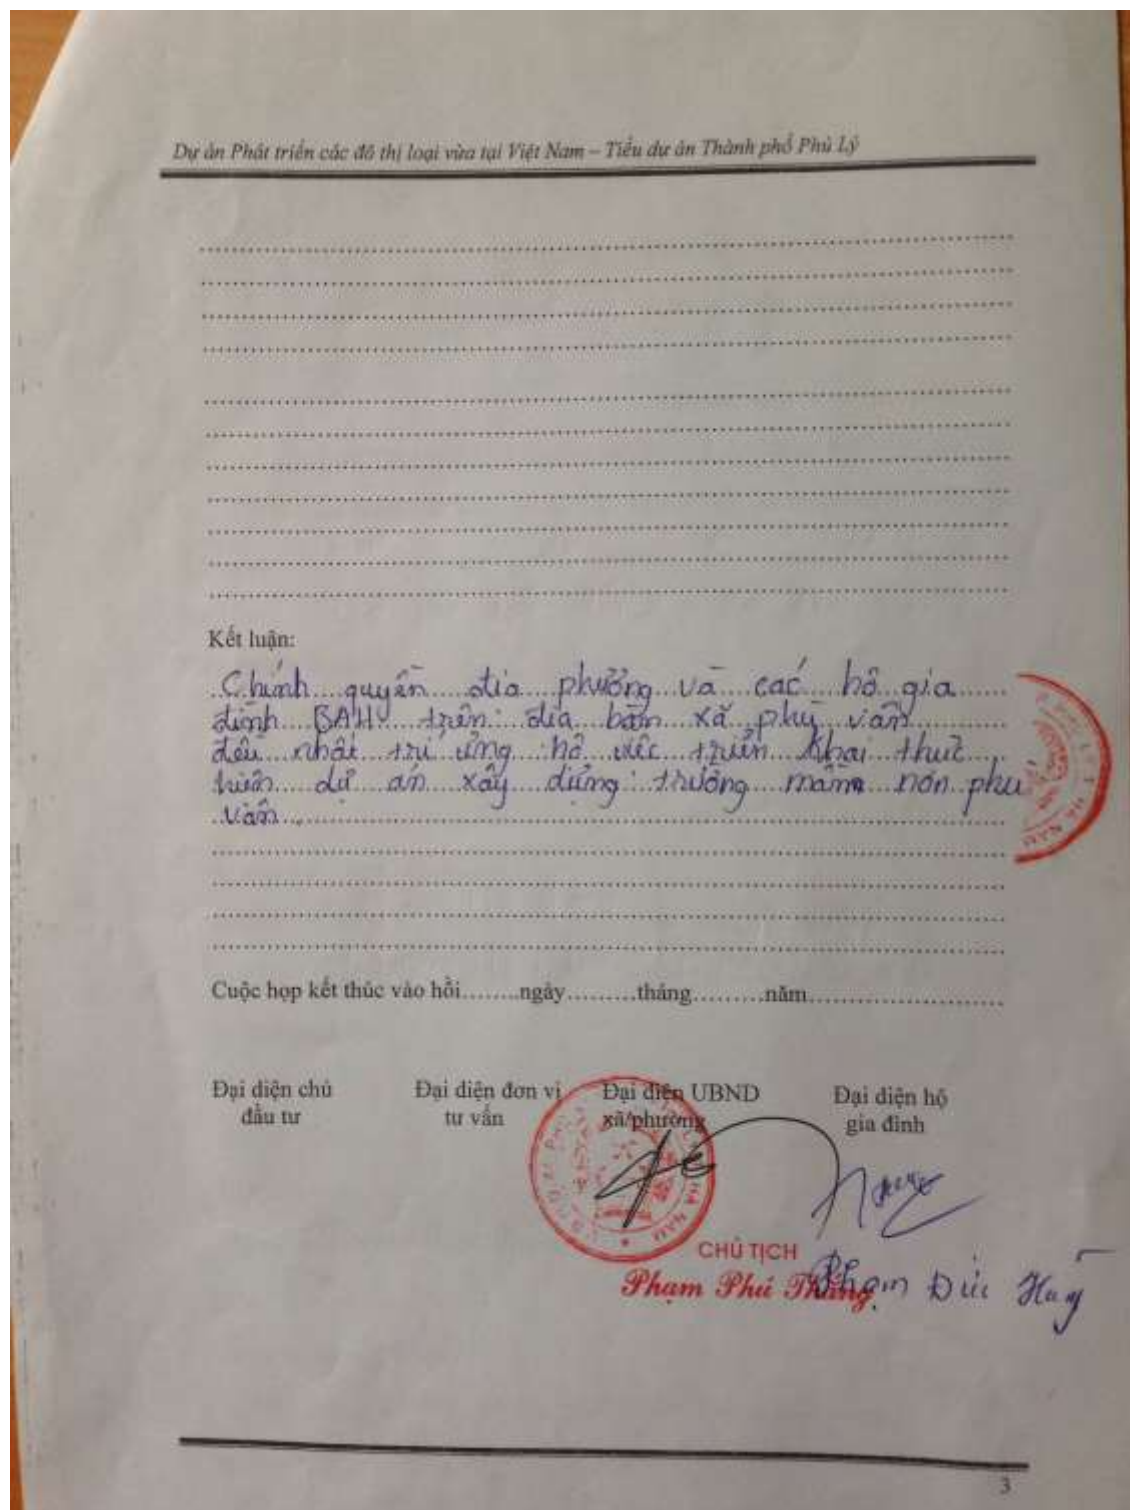 Dự án Phát triển các đô thị loại vừa tại Việt Nam – Tiểu dự án Thành phố Phủ Lý
Kết luận:
Chính quyền địa phương và các hộ gia
đình BAH trên địa bàn xã phù vân
đều nhất trí ủng hộ việc triển khai thực
hiện dự án xây dựng trường mầm non phù
vân.
Cuộc họp kết thúc vào hồi........ngày.........tháng.........năm.........................
Đại diện chủ đầu tư
Đại diện đơn vị tư vấn
Đại diện UBND xã/phường
Đại diện hộ gia đình
CHỦ TỊCH
Phạm Phú Thắng
Phạm Đức Huy
HÀ NAM
3